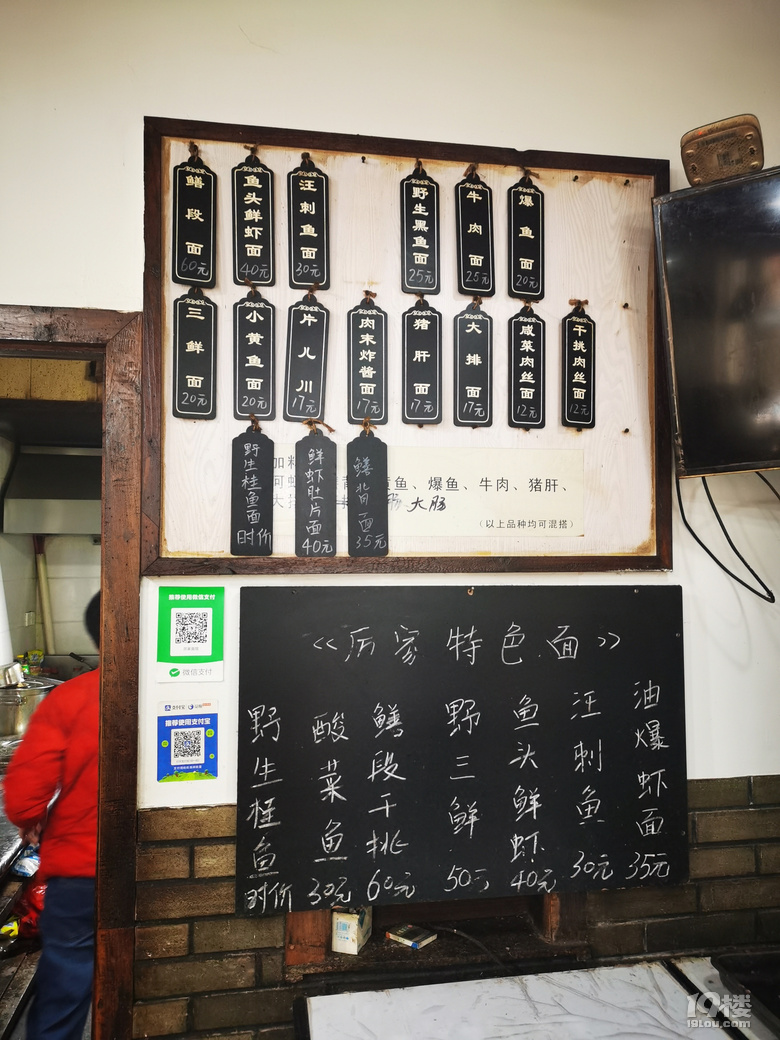 鳝段面 60元
鱼头鲜虾面 40元
汪刺鱼面 30元
野生黑鱼面 25元
牛肉面 25元
爆鱼面 20元
三鲜面 20元
小黄鱼面 20元
片儿川 17元
肉末炸酱面 17元
猪肝面 17元
大排面 17元
咸菜肉丝面 12元
干挑肉丝面 12元
野生桂鱼面 时价
鲜虾肚片面 40元
鳝背面 35元
加
鱼、爆鱼、牛肉、猪肝、
大肠
(以上品种均可混搭)
推荐使用微信支付
微信支付
支付宝
推荐使用支付宝
《历家特色面》
野生桂鱼 时价
酸菜鱼 30元
鳝段干挑 60元
野三鲜 50元
鱼头鲜虾 40元
汪刺鱼 30元
油爆虾面 35元
19楼
19lou.com